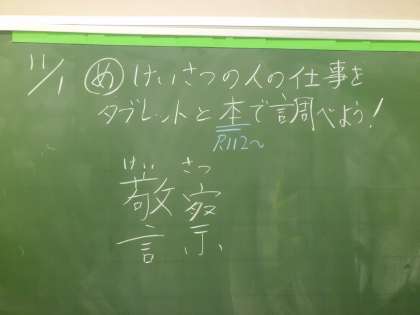 11/1 め けいさつの人の仕事を
タブレットと本で調べよう!
P112〜
けい さつ
警察